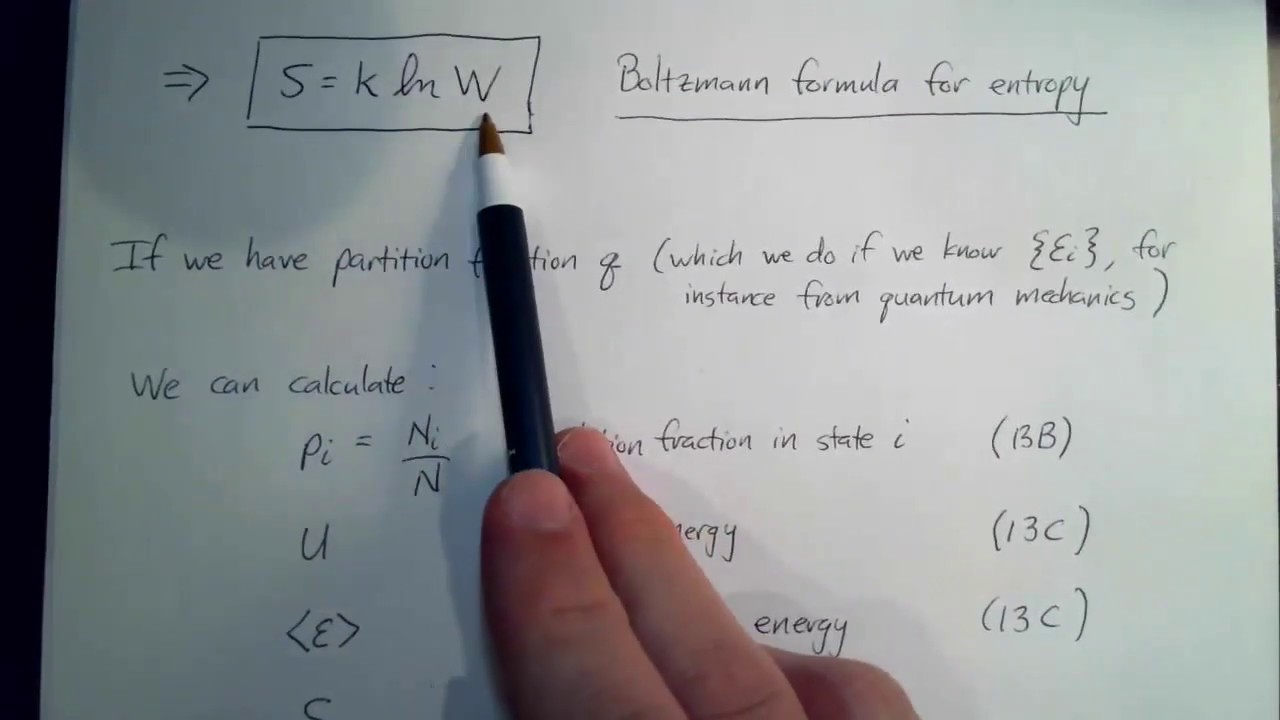 ⇒ S = k ln W Boltzmann formula for entropy
If we have partition q (which we do if we know {εi}, for
instance from quantum mechanics)
We can calculate :
pi = Ni/N fraction in state i (13B)
U (13C)
<ε> energy (13C)
S